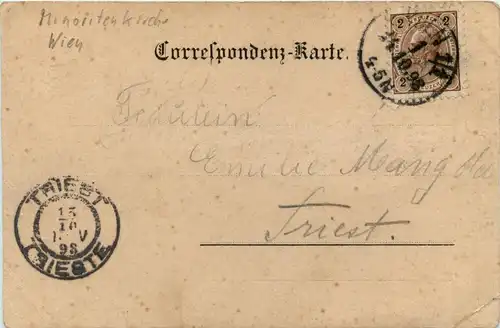 Minoritenkirche
Wien
Correspondenz-Karte.
2 2
Fräulein
Emilie
Triest.
TRIEST
15
10
98
TRIESTE